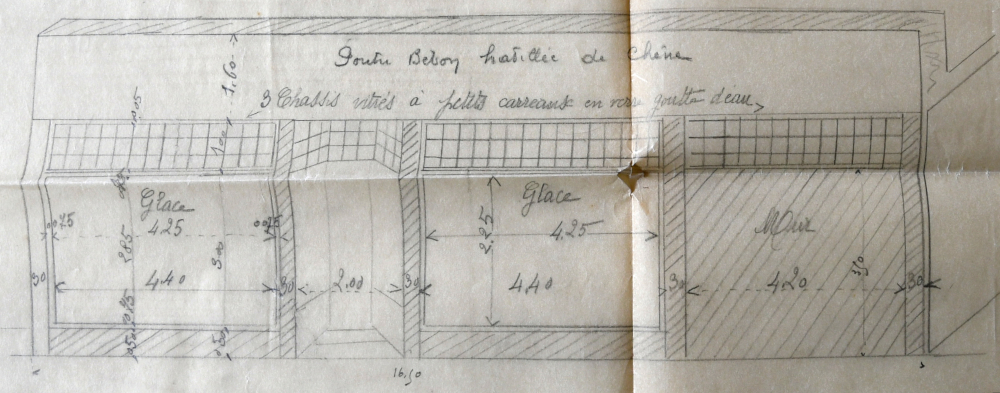 Poutre Béton habillée de Chêne
1.60
3 Chassis vitrés à petits carreaux en verre goutte d'eau
1.00
Glace
4.25
Glace
4.25
2.25
Mur
0075
0075
2.85
3.00
3.50
30
4.40
30
2.00
30
4.40
30
4.20
30
0.50
16.50